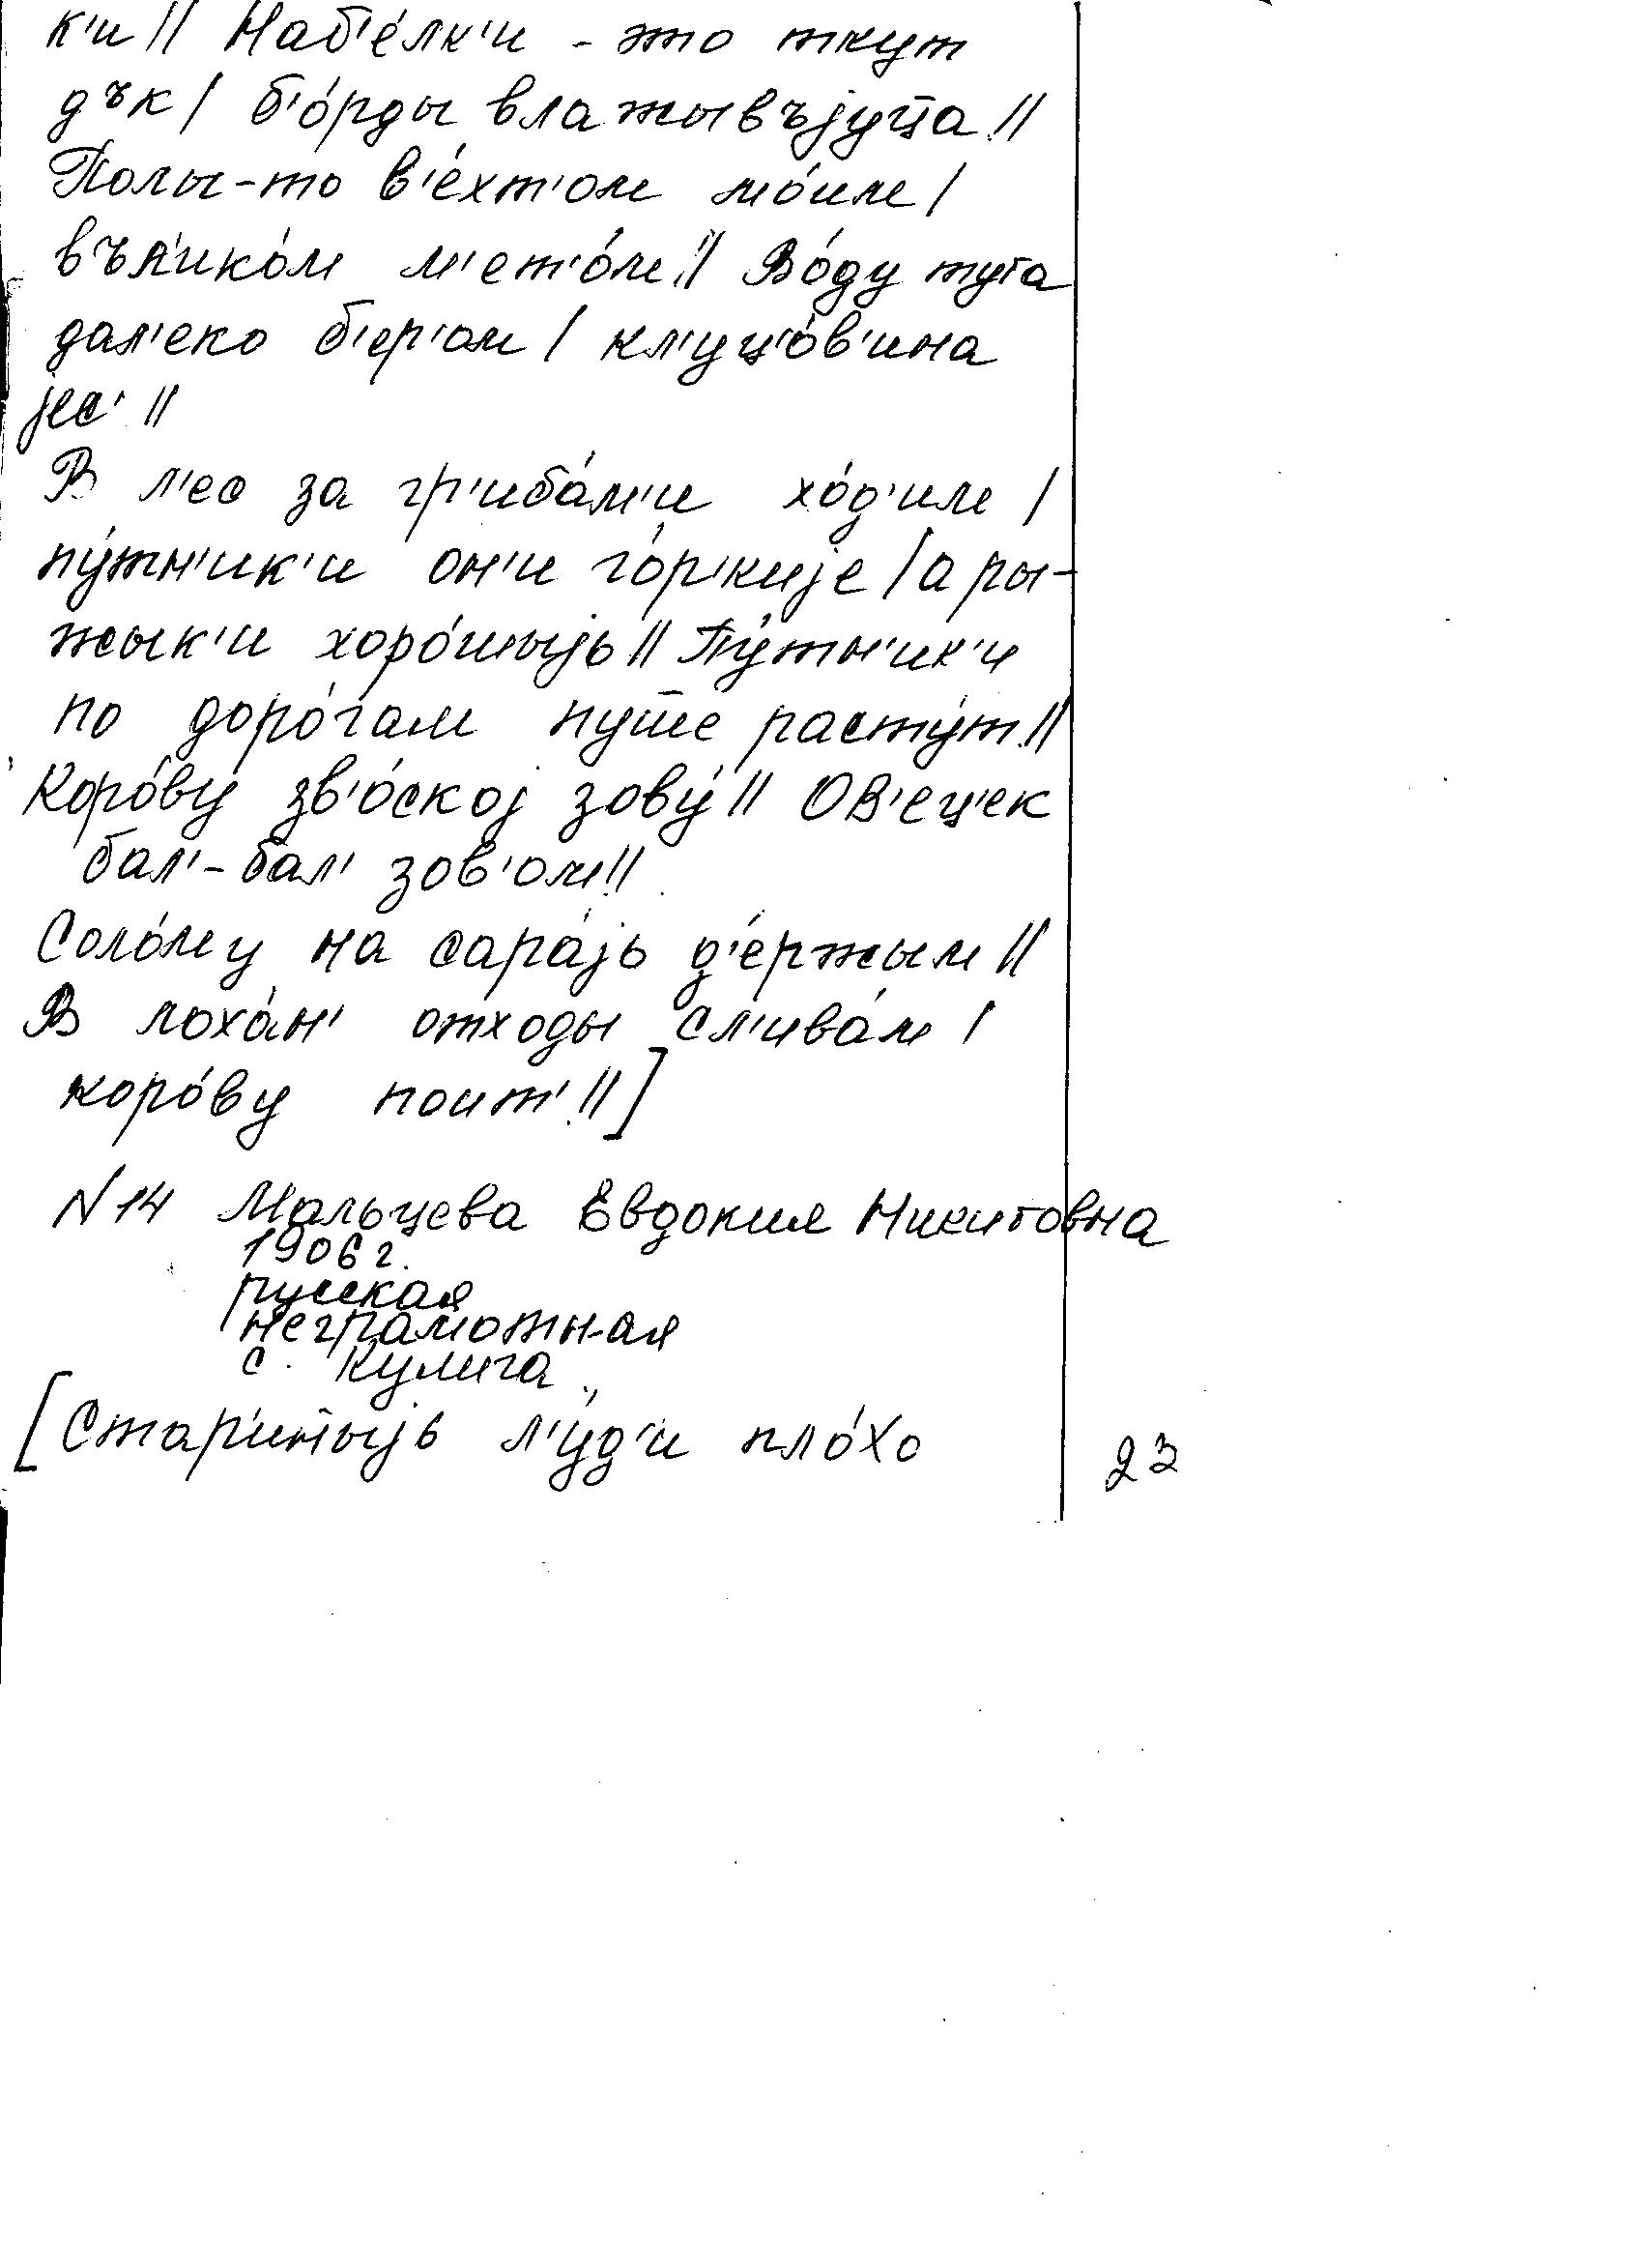 к'и || Наб'éлк'и - это ткут
дък | б'óрды влажывъјуц̄а ||
Полы-то в'éхт'ом мóим |
вън'икóм м'ет'óм || Вóду тута
дал'еко б'ер'ом | кл'уц'óв'ина
јес' ||
В л'ес за гр'ибáм'и хóд'им |
пýтн'ик'и он'и гóр'кије | а ры-
жык'и хорóшыјь || Пýтн'ик'и
по дорóгам пуш̄е растýт ||
Корóву зв'óској зовý || Ов'ец'ек
бал'-бал' зов'ом ||
Солóму на сарáјь д'éржым ||
В лохáн' отходы сл'ивáм |
корóву поит' || ]
N 14 Мальцева Евдокия Никитовна
1906 г.
русская
неграмотная
с. Кулига
[ Стар'ин̄ыјь л'ýд'и плóхо
23